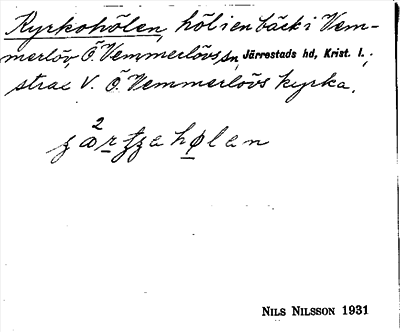 Kyrkohölen, höl i en bäck i Vem-
merlöv Ö. Vemmerlövs sn, Järrestads hd, Krist. l.,
strax V. Ö. Vemmerlövs kyrka.
NILS NILSSON 1931